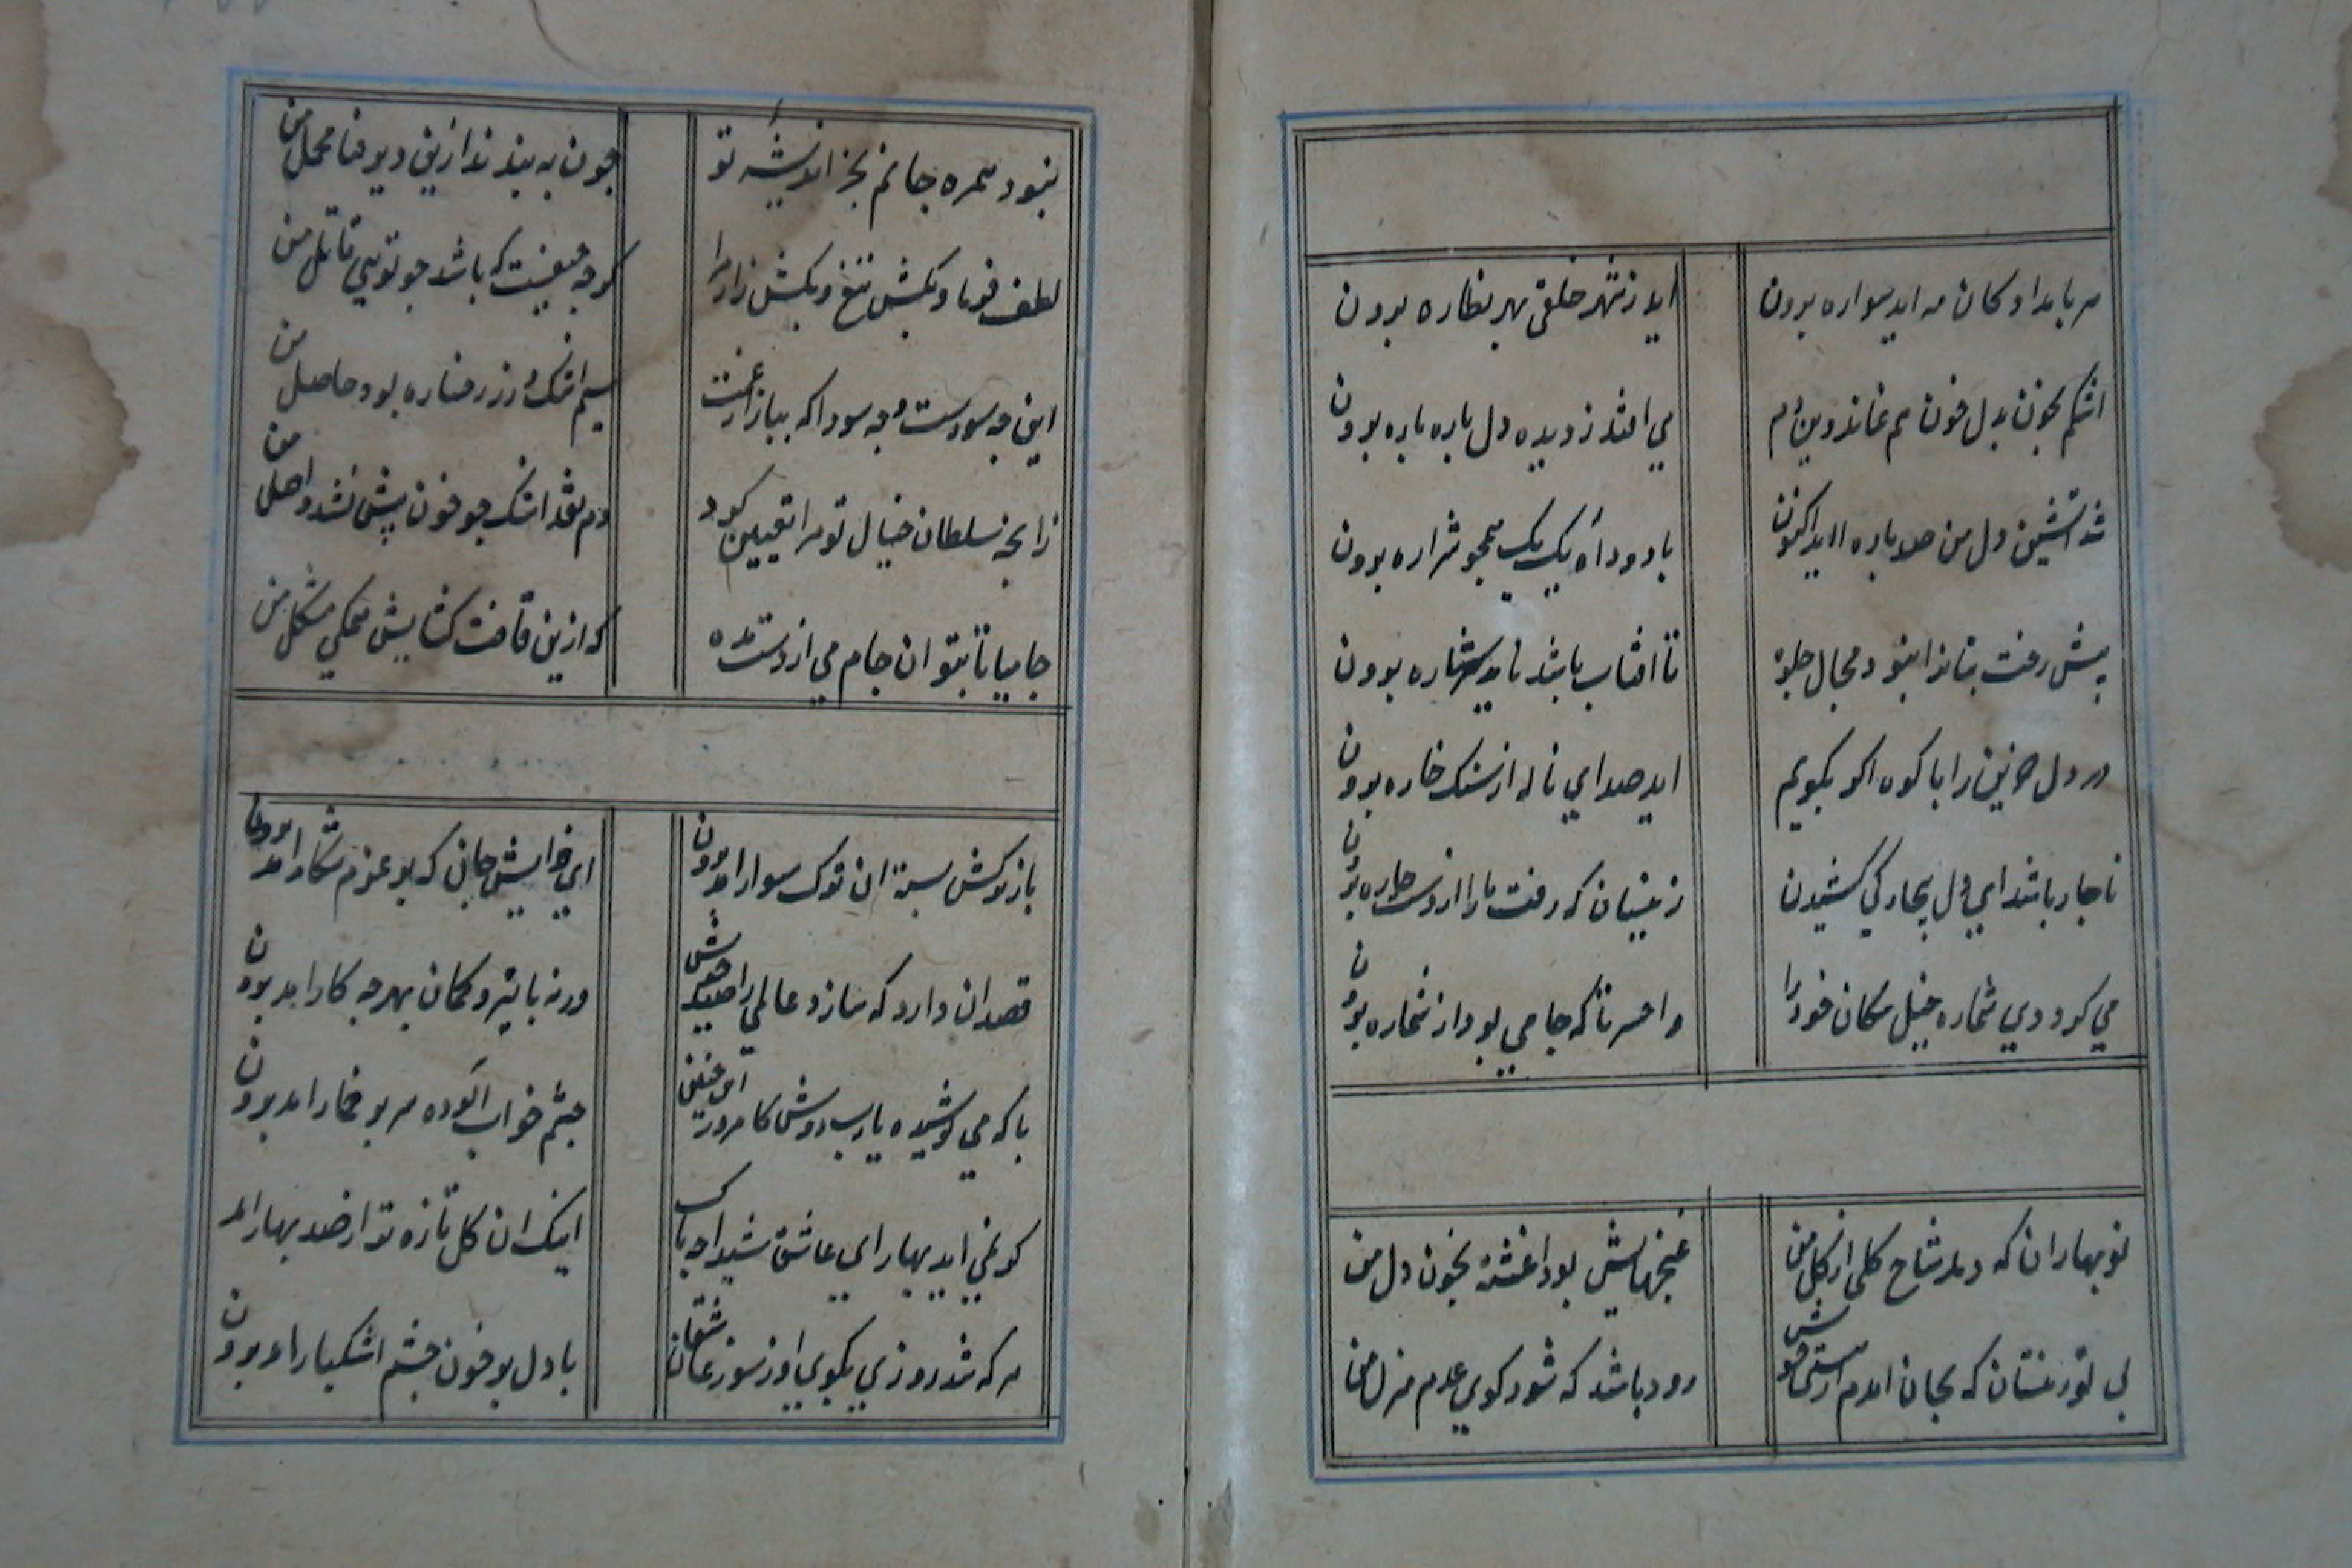 هر بامدادکان مه اید سواره برون
اید ز شهر خلقی بهر نظاره برون
اشکم بخون بدل خون هم نماند وین دم
می افتد ز دیده دل پاره پاره برون
شد اتشین دل من صد پاره اید اکنون
با دود آه یک یک همچو شراره برون
پیش رخت بتانرا نبود مجال جلوه
تا افتاب باشد ناید ستاره برون
درد دل حزین را با کوه اکر بکویم
اید صدای ناله از سنک خاره برون
ناچار باشد ای دل بیچارکی کشیدن
زینسان که رفت ما را از دست چاره برون
می کرد دی شماره خیل سکان خود را
واحسرتا که جامی بود از شماره برون
نوبهاران که دمد شاخ کلی از کل من
غنچهایش بود اغشته بخون دل من
بی تو زینسان که بجان امدم از هستی خویش
زود باشد که شود کوی عدم منزل من
نبود همره جانم بجز اندیشه تو
چون به بندند ازین دیر فنا محمل من
لطف فرما و بکش تیغ و بکش زار مرا
کر چه حیفست که باشد چو تویی قاتل من
این چه سودست و چه سودا که ببازار غمت
سیم اشک و زر رخساره بود حاصل من
زانچه سلطان خیال تو مرا تعیین کرد
دم نقد اشک چو خون پیش نشد واصل من
جامیا تا بتوان جام می از دست مده
که ازین قافت کشایش محکی مشکل من
باز ترکش بسته ان ترک سوار امد برون
ای خوایش جان که بر عزم شکار امد برون
قصد ان دارد که سازد عالمی را صید خویش
ورنه با تیر و کمان بهر چه کار امد برون
با که می نوشیده یارب دوش کامروز این چنین
چشم خواب الوده سر پر خمار امد برون
کر نمی اید بهار ای عاشق شیدا چه باک
اینک ان کل تازه تر از صد بهار امد
هر که شد روزی بکوی او ز سوز عاشقان
با دل پر خون چشم اشکبار امد برون